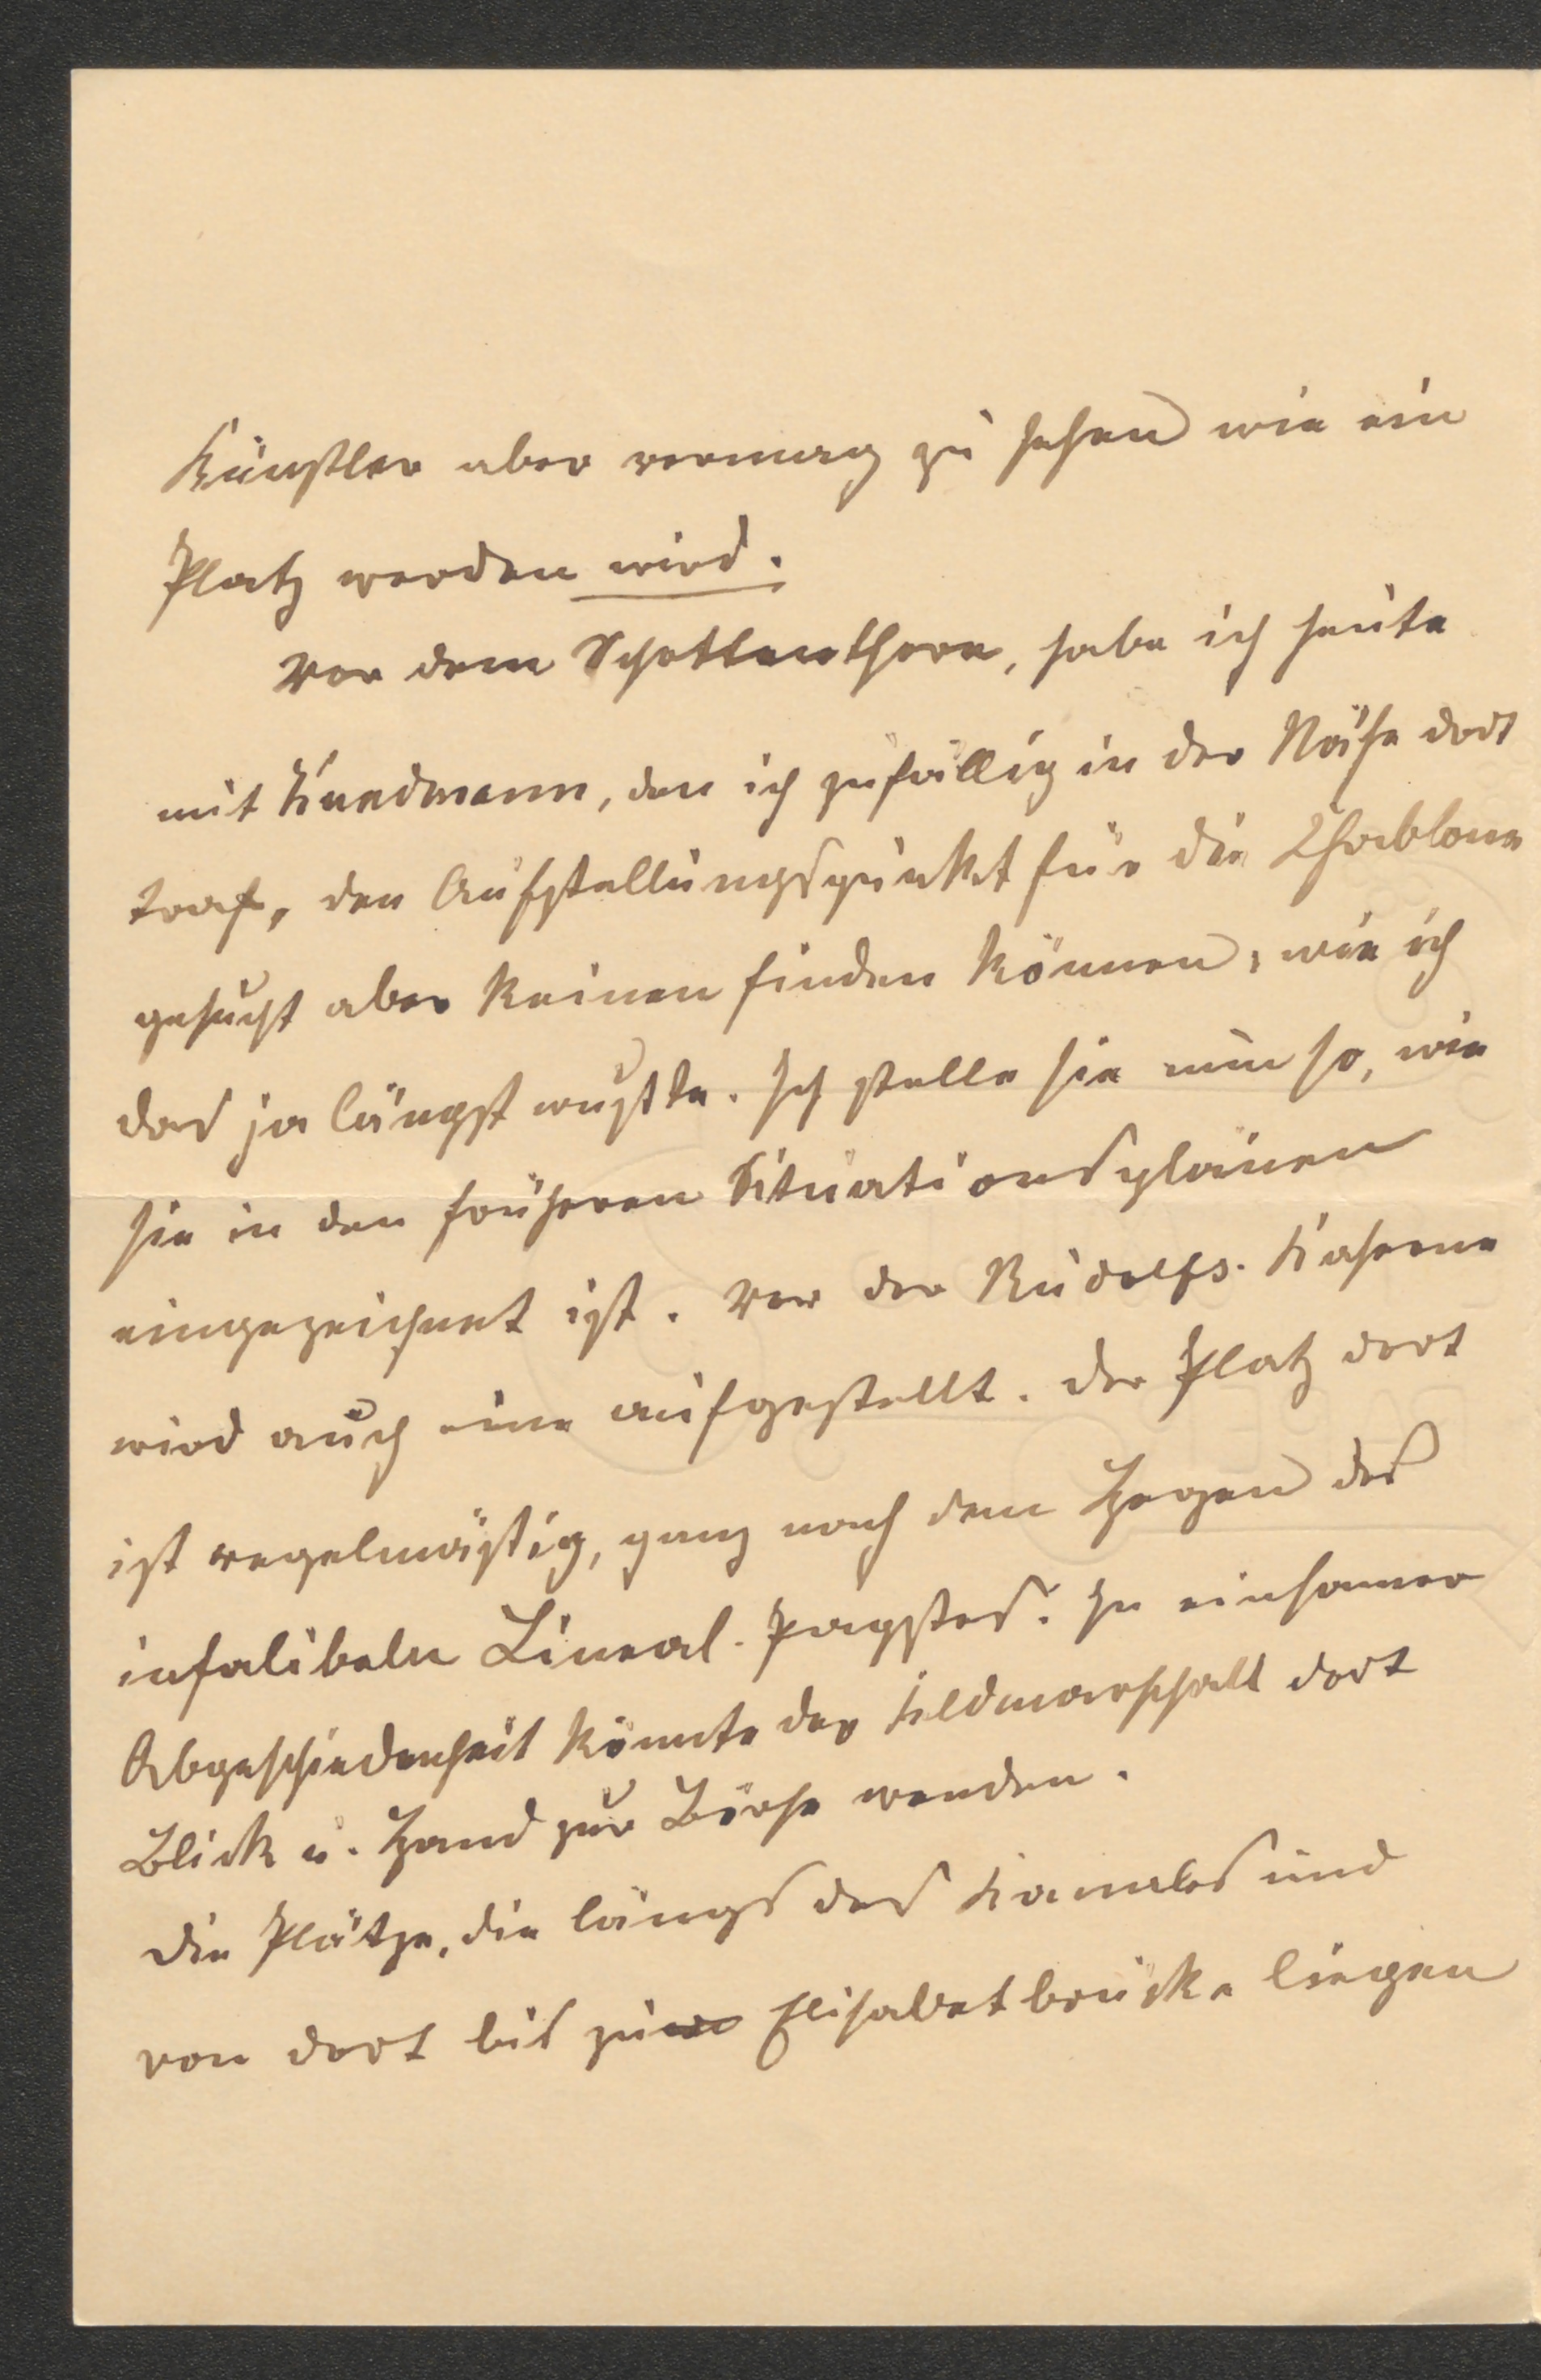 Künstler aber vermag zu sehen wie ein
Platz werden wird.
Vor dem Schottenthore, habe ich heute
mit Kundmann, den ich zufällig in der Nähe dort
traf, den Aufstellungspunkt für die Schablone
gesucht aber keinen finden können, wie ich
das ja längst wußte. Ich stelle sie nun so, wie
sie in den früheren Situationsplänen
eingezeichnet ist. Vor der Rudolfs-Kaserne
wird auch eine aufgestellt. Der Platz dort
ist regelmäßig, ganz nach dem Herzen des
infalibeln Lineal-Papstes. In einsamer
Abgeschiedenheit könnte der Feldmarschall dort
Blick u. Hand zur Börse wenden.
Die Plätze, die längs des Kanales und
von dort bis zur Elisabetbrücke liegen